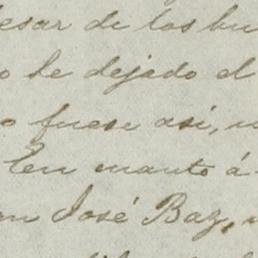 esar de los bu
o he dejado el
o fuese asi, n
En cuanto á
n José Baz,